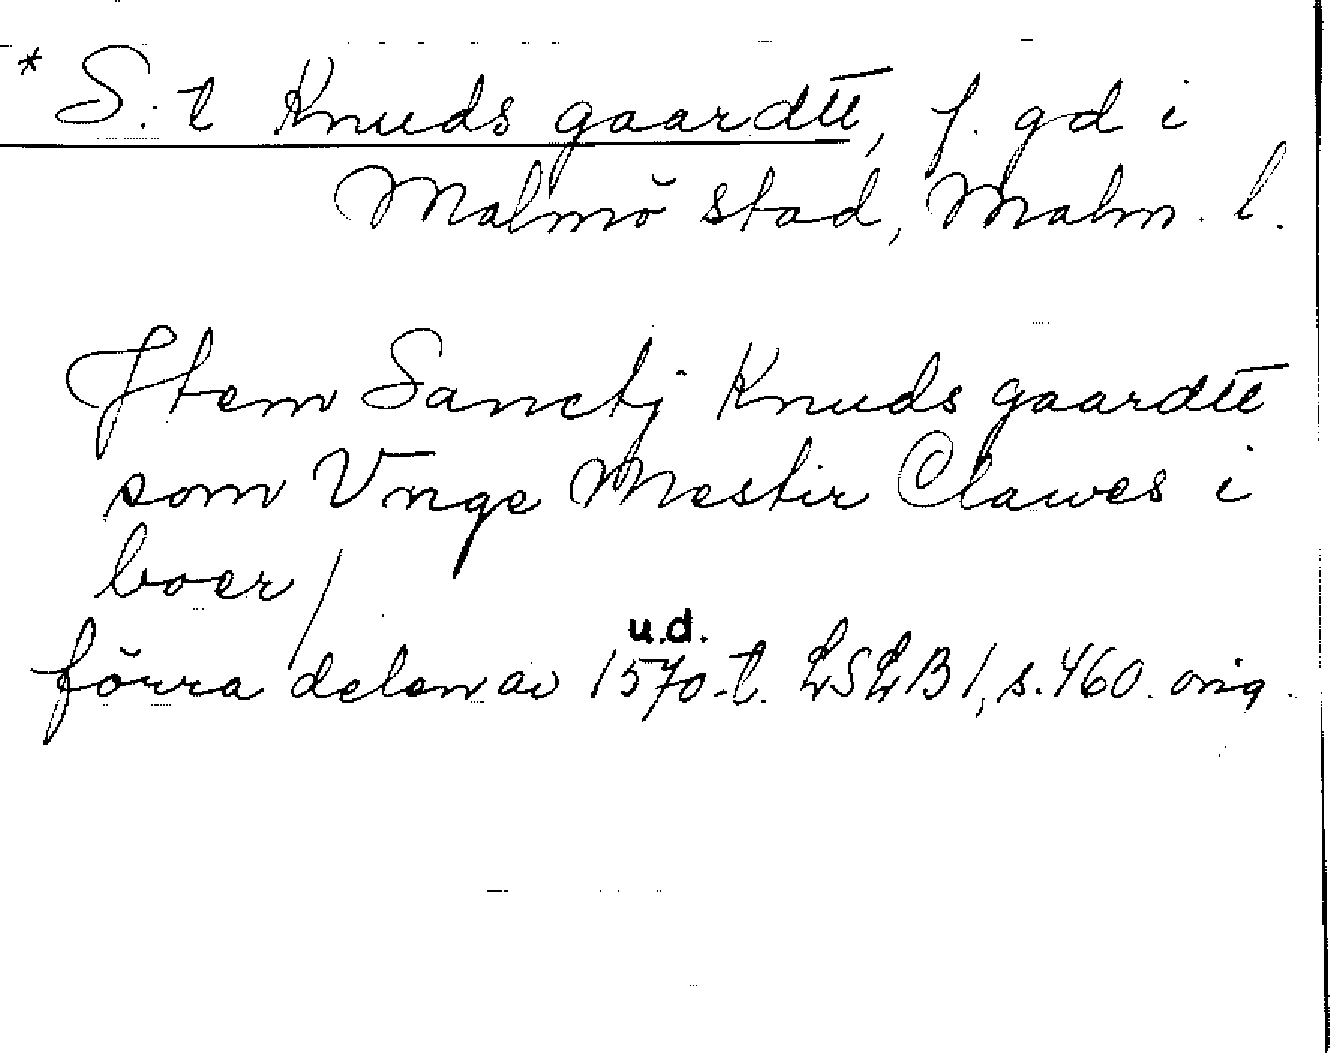 * S:t Knuds gaardtt, f. gd i
Malmö stad, Malm. l.
Jtem Sanctj Knuds gaardtt
som Vnge Mestir Clawes i
boer /
u.d.
förra delen av 1570-t. LSLB 1, s. 460. orig.